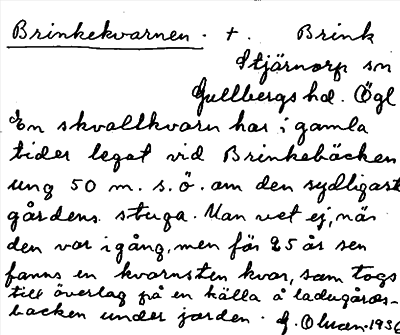 Brinkekvarnen. +. Brink
Stjärnorp sn
Gullbergs hd. Ögl
En skvaltkvarn har i gamla
tider legat vid Brinkebäcken
ung 50 m. s.ö. om den sydligast
gårdens stuga. Man vet ej, när
den var igång, men för 25 år sen
fanns en kvarnsten kvar, som togs
till överlag på en källa å ladugårds-
backen under jorden. G. Olusen. 1936